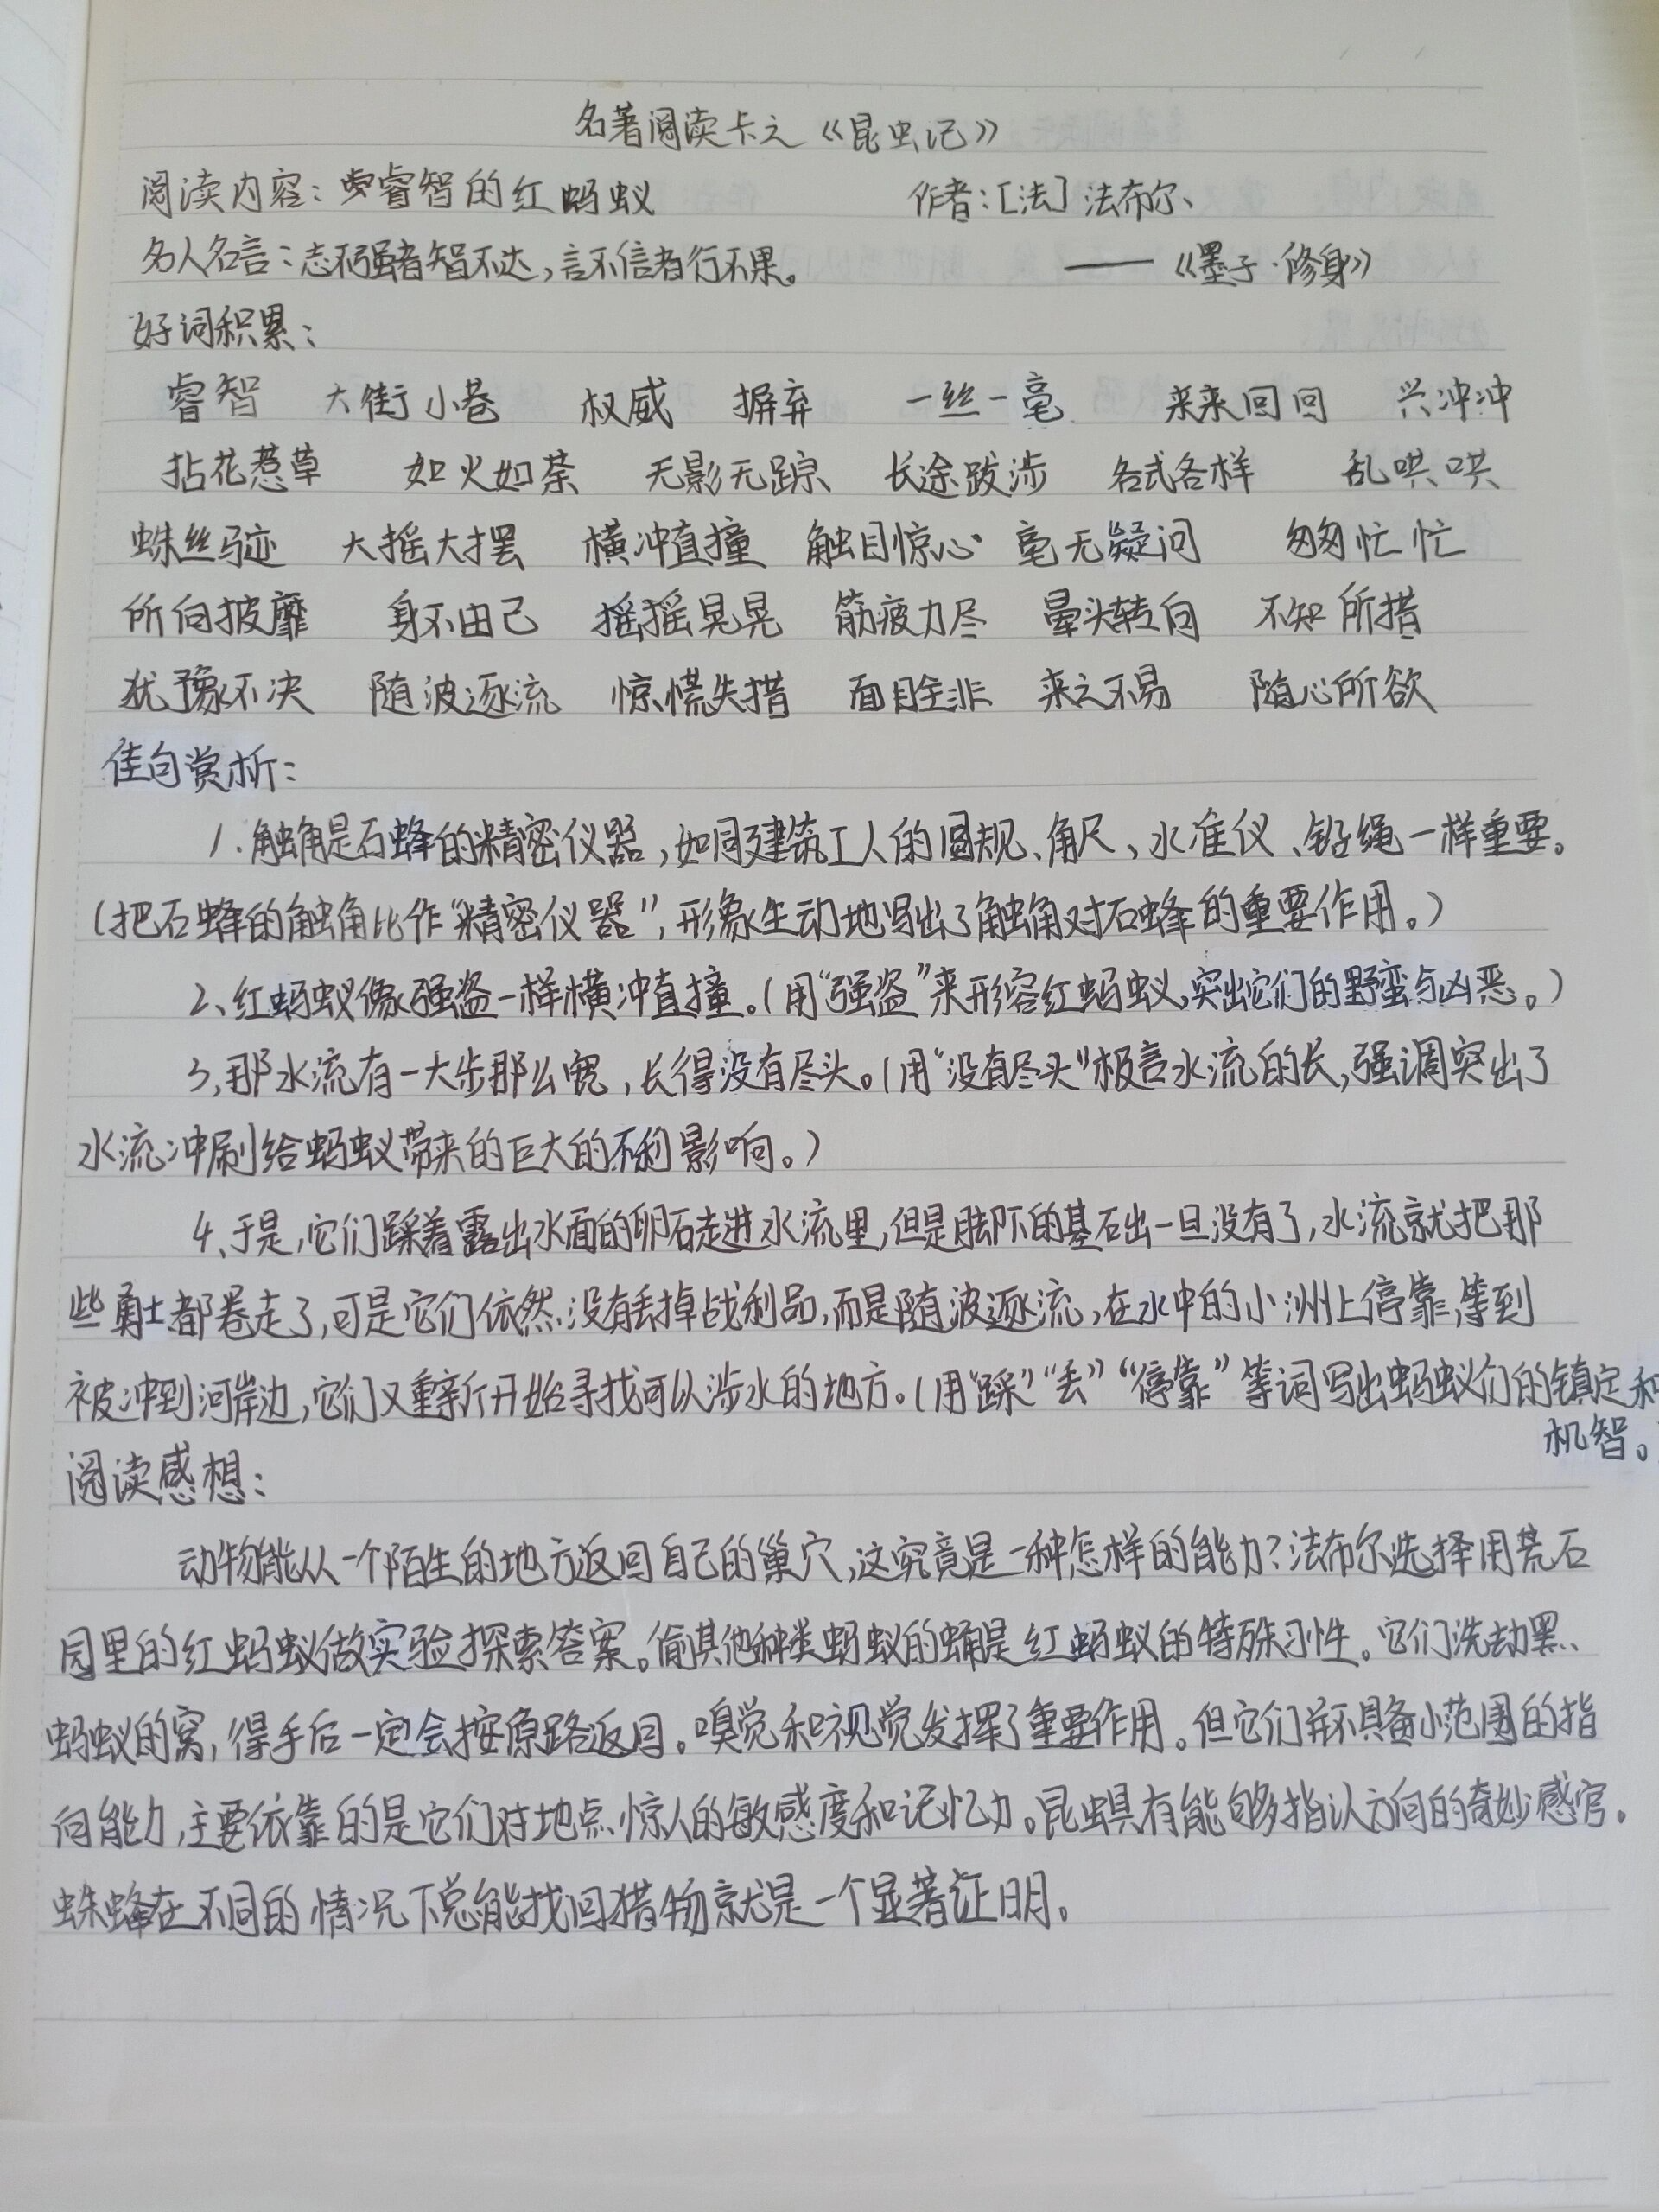 名著阅读卡之《昆虫记》
阅读内容：睿智的红蚂蚁 作者：[法]法布尔
名人名言：志不强者智不达，言不信者行不果。 ——《墨子·修身》
好词积累：
睿智 大街小巷 权威 摒弃 一丝一毫 来来回回 兴冲冲
拈花惹草 如火如荼 无影无踪 长途跋涉 各式各样 乱哄哄
蛛丝马迹 大摇大摆 横冲直撞 触目惊心 毫无疑问 匆匆忙忙
所向披靡 身不由己 摇摇晃晃 筋疲力尽 晕头转向 不知所措
犹豫不决 随波逐流 惊慌失措 面目全非 来之不易 随心所欲
佳句赏析：
1.触角是石蜂的精密仪器，如同建筑工人的圆规、角尺、水准仪、铅绳一样重要。
（把石蜂的触角比作“精密仪器”，形象生动地写出了触角对石蜂的重要作用。）
2、红蚂蚁像强盗一样横冲直撞。（用“强盗”来形容红蚂蚁，突出它们的野蛮与凶恶。）
3，那水流有一大步那么宽，长得没有尽头。（用“没有尽头”极言水流的长，强调突出了
水流冲刷给蚂蚁带来的巨大的不利影响。）
4、于是，它们踩着露出水面的卵石走进水流里，但是脚下的基石出一旦没有了，水流就把那
些勇士都卷走了，可是它们依然没有丢掉战利品，而是随波逐流，在水中的小洲上停靠，等到
被冲到河岸边，它们又重新开始寻找可以涉水的地方。（用“踩”“丢”“停靠”等词写出蚂蚁们的镇定和
机智。
阅读感想：
动物能从一个陌生的地方返回自己的巢穴，这究竟是一种怎样的能力？法布尔选择用荒石
园里的红蚂蚁做实验探索答案。偷其他种类蚂蚁的蛹是红蚂蚁的特殊习性。它们洗劫黑
蚂蚁的窝，得手后一定会按原路返回。嗅觉和视觉发挥了重要作用。但它们并不具备小范围的指
向能力，主要依靠的是它们对地点惊人的敏感度和记忆力。昆虫具有能够指认方向的奇妙感官。
蛛蜂在不同的情况下总能找回猎物就是一个显著证明。